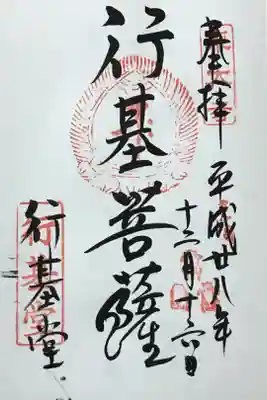 奉拝
平成廿八年
十二月十六日
行基菩薩
行基堂